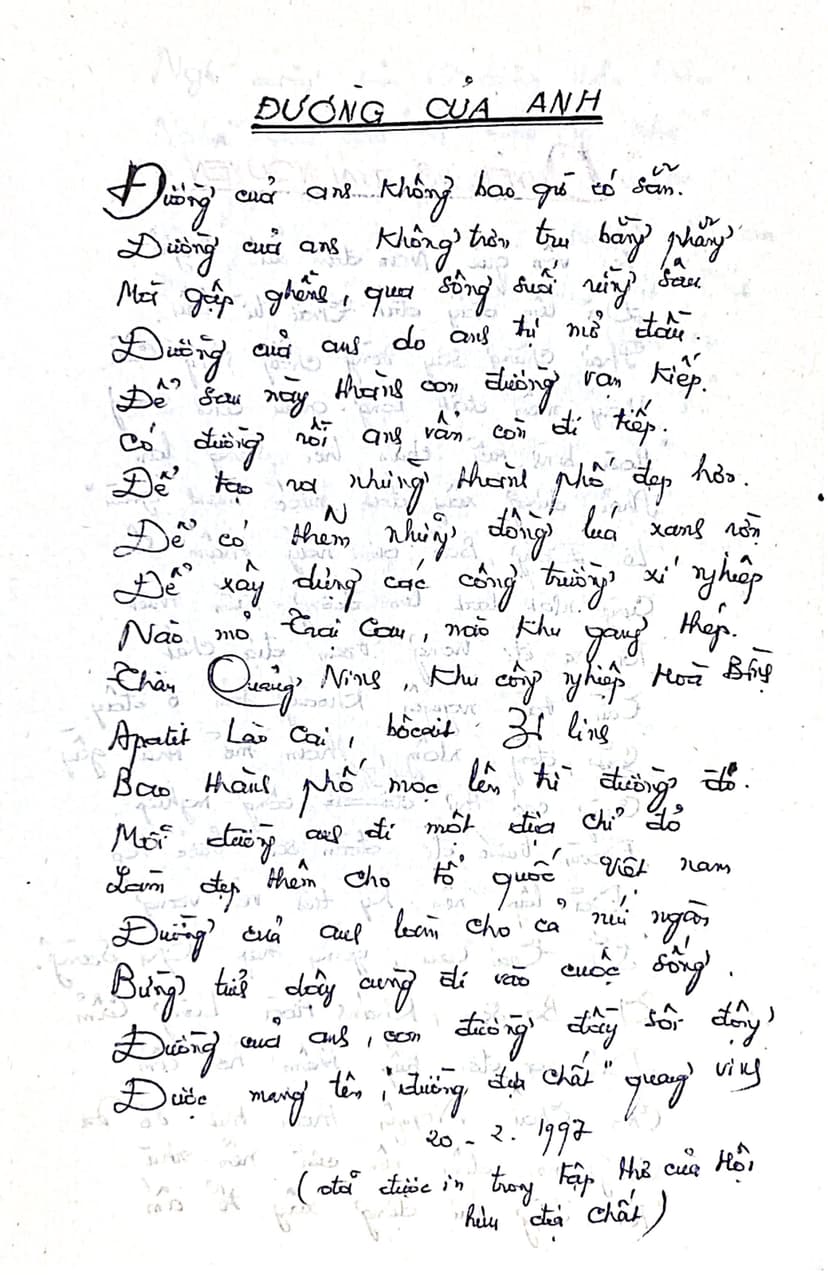 ĐƯỜNG CỦA ANH
Đường của anh không bao giờ có sẵn.
Đường của anh không trơn tru bằng phẳng
Mà gập ghềnh, qua sông suối rừng sâu
Đường của anh do anh tự mở đầu.
Để sau này thành con đường vạn kiếp.
Có đường rồi anh vẫn còn đi tiếp.
Để tạo ra những thành phố đẹp hơn.
Để có thêm những đồng lúa xanh rờn
Để xây dựng các công trường xí nghiệp
Nào mỏ Trại Cau, nào khu gang thép.
Than Quảng Ninh, khu công nghiệp Hoà Bình
Apatit Lào Cai, bôcait
Bao thành phố mọc lên từ đường đó.
Mỗi đường anh đi một địa chỉ đỏ
Làm đẹp thêm cho tổ quốc Việt nam
Đường của anh làm cho cả núi ngàn
Bừng tỉnh dậy cùng đi vào cuộc sống.
Đường của anh, con đường đầy sôi động
Được mang tên "đường địa chất" quang vinh
20 - 2. 1997
(đã được in trong tập thơ của Hội
hữu địa chất)